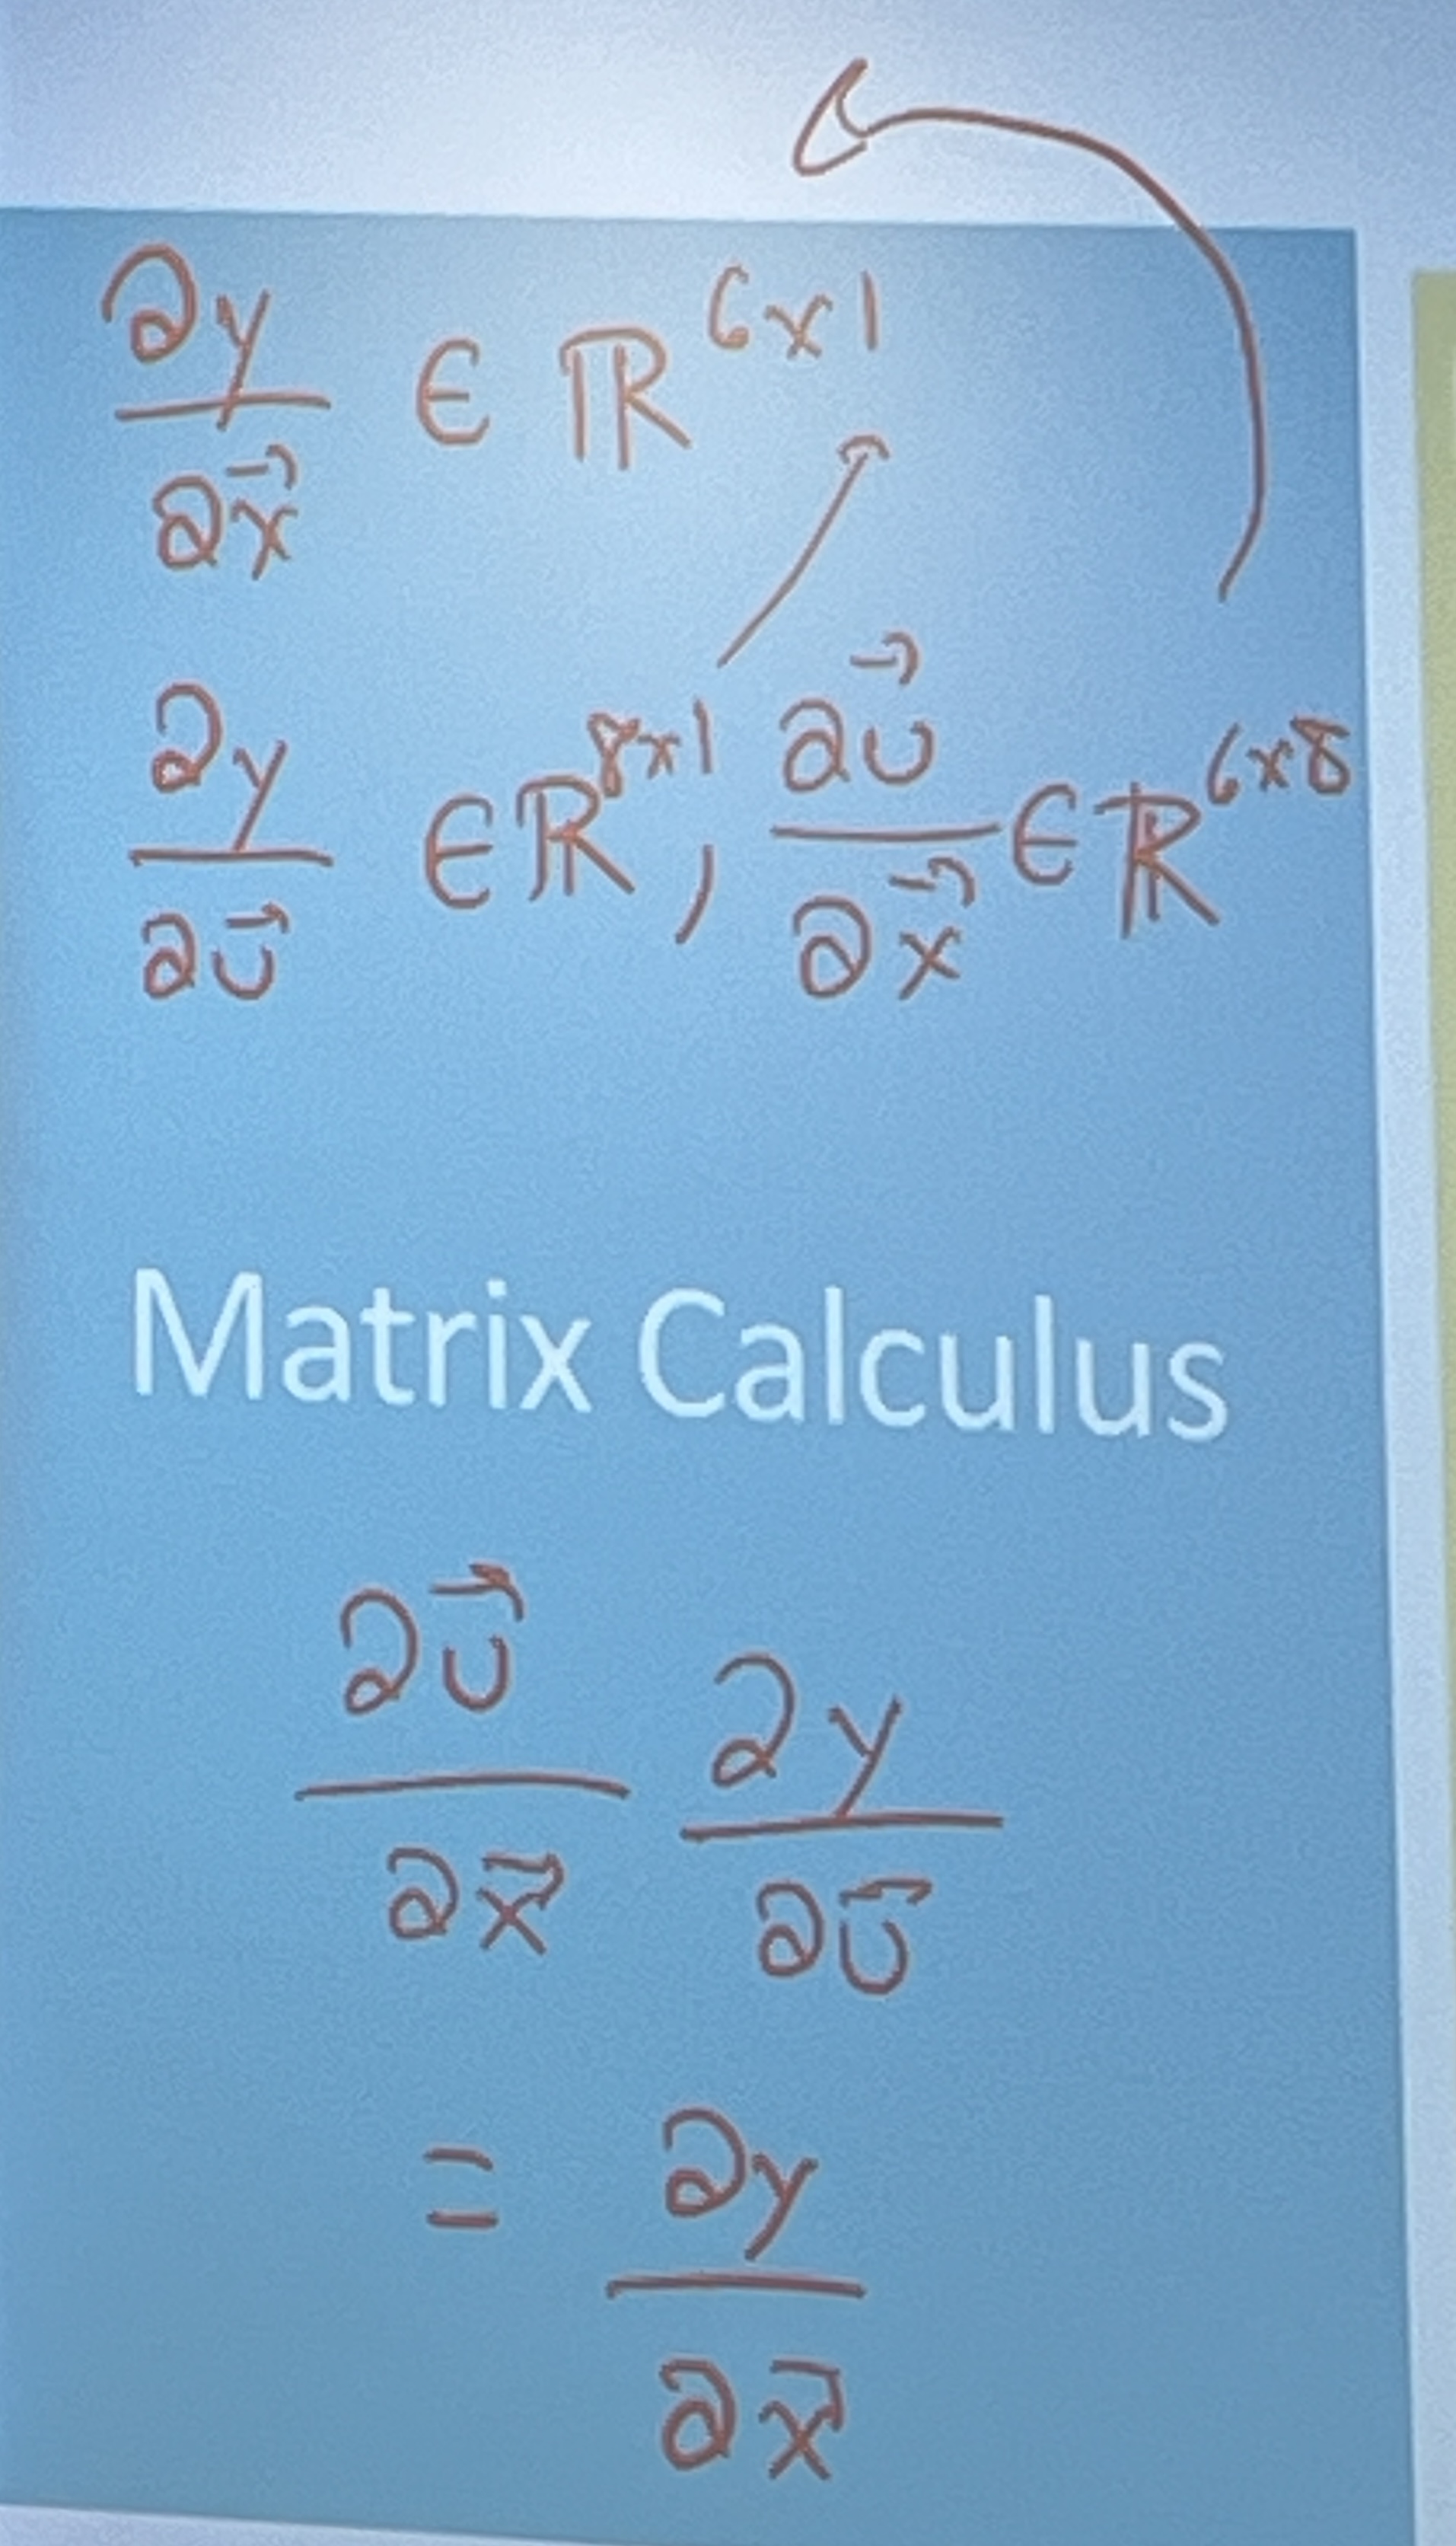 ∂y/∂x⃗ ∈ ℝ^{6x1}
∂y/∂u⃗ ∈ ℝ^{8x1}, ∂u⃗/∂x⃗ ∈ ℝ^{6x8}
Matrix Calculus
∂u⃗/∂x⃗ ∂y/∂u⃗
= ∂y/∂x⃗